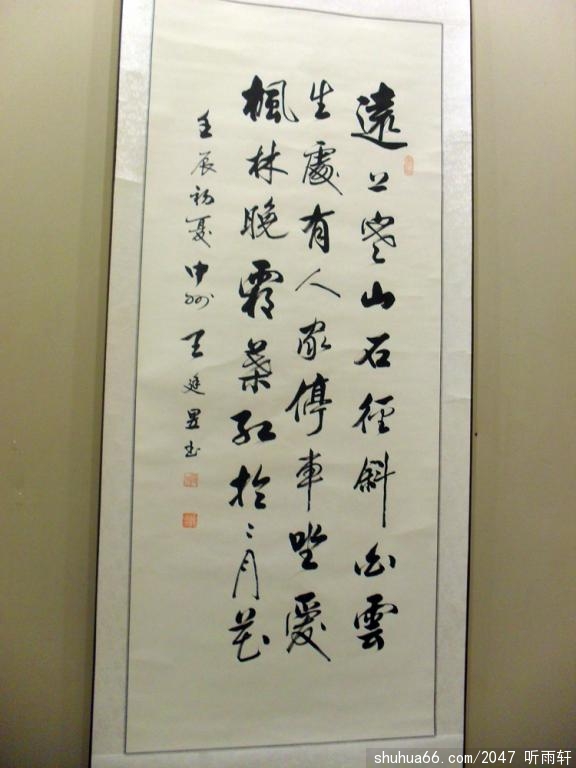 遠上寒山石徑斜白雲
生處有人家停車坐愛
楓林晚霜葉紅於二月花
壬辰初夏中州王廷书
shuhua66.com/2047 听雨轩